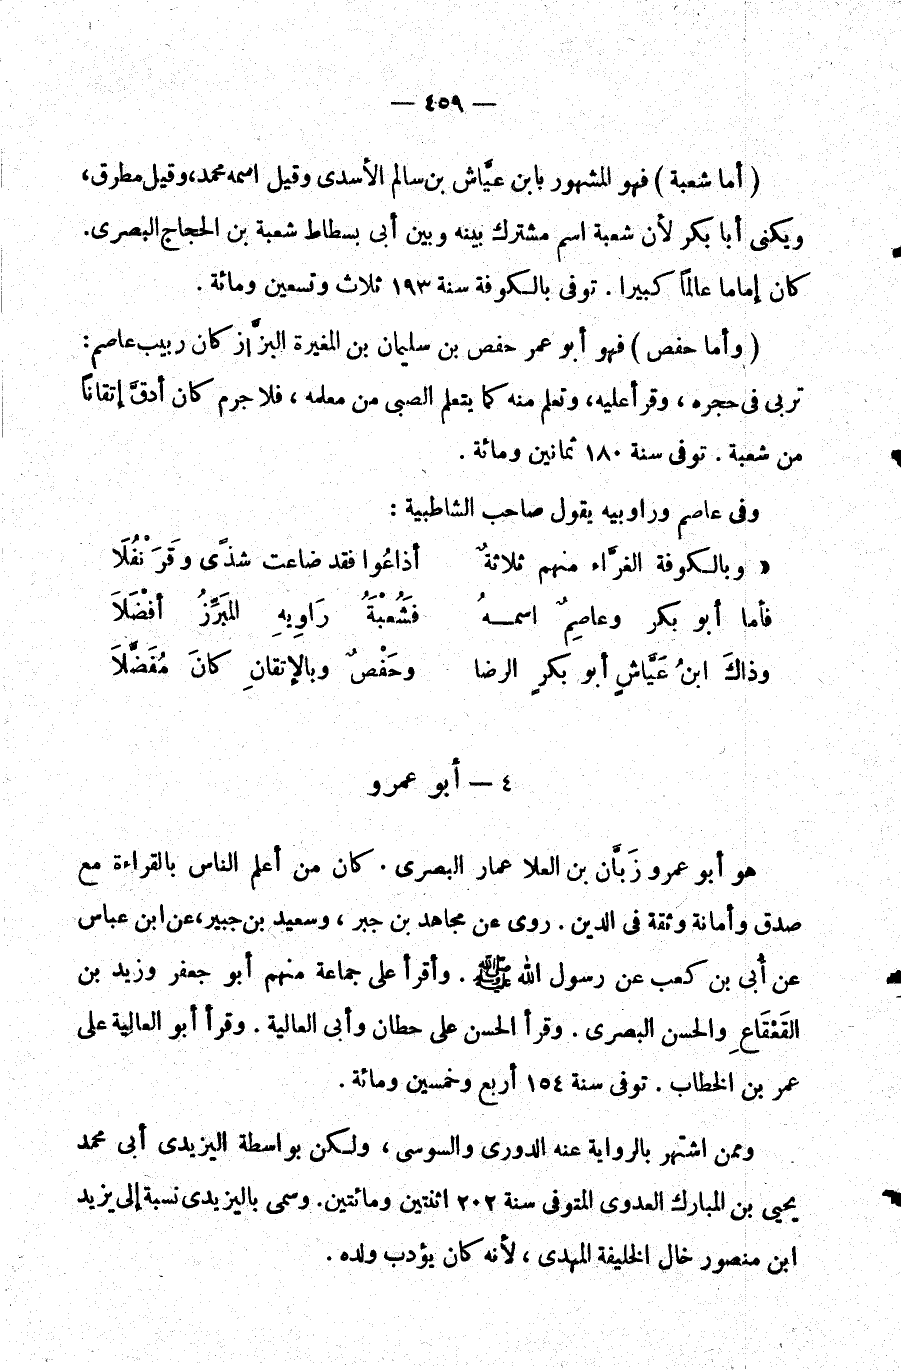 — ٤٥٩ —
( أما شعبة ) فهو المشهور بابن عيَّاش بن سالم الأسدى وقيل اسمه محمد، وقيل مطرق،
ويكنى أبا بكر لأن شعبة اسم مشترك بينه وبين أبى بسطاط شعبة بن الحجاج البصرى.
كان إماما عالماً كبيرا . توفى بالكوفة سنة ١٩٣ ثلاث وتسعين ومائة .
( وأما حفص ) فهو أبو عمر حفص بن سليمان بن المغيرة البزَّاز كان ربيب عاصم :
تربى فى حجره ، وقرأ عليه، وتعلم منه كما يتعلم الصبى من معلمه ، فلا جرم كان أدقَّ إتقاناً
من شعبة . توفى سنة ١٨٠ ثمانين ومائة .
وفى عاصم وراوييه يقول صاحب الشاطبية :
« وبالكوفة الغرَّاء منهم ثلاثةٌ أذاعُوا فقد ضاعت شذًى وقَرَنْفُلَا
فأما أبو بكر وعاصِمٌ اسمـــهُ فَشُعْبَةُ رَاوِيهِ المَبَرِّزُ أفضَلَا
وذاكَ ابنُ عَيَّاشٍ أبو بكرٍ الرضا وحَفْصٌ وبالإتقانِ كانَ مُفَضَّلَا
٤ — أبو عمرو
هو أبو عمرو زَبَّان بن العلا عمار البصرى . كان من أعلم الناس بالقراءة مع
صدق وأمانة وثقة فى الدين . روى عن مجاهد بن جبر ، وسعيد بن جبير، عن ابن عباس
عن أُبى بن كعب عن رسول الله ﷺ . وأقرأ على جماعة منهم أبو جعفر وزيد بن
القَعْقَاعِ والحسن البصرى . وقرأ الحسن على حطان وأبى العالية . وقرأ أبو العالية على
عمر بن الخطاب . توفى سنة ١٥٤ أربع وخمسين ومائة .
وممن اشتهر بالرواية عنه الدورى والسوسى ، ولكن بواسطة اليزيدى أبى محمد
يحيى بن المبارك العدوى المتوفى سنة ٢٠٢ اثنتين ومائتين. وسمى باليزيدى نسبة إلى يزيد
ابن منصور خال الخليفة المهدى ، لأنه كان يؤدب ولده .